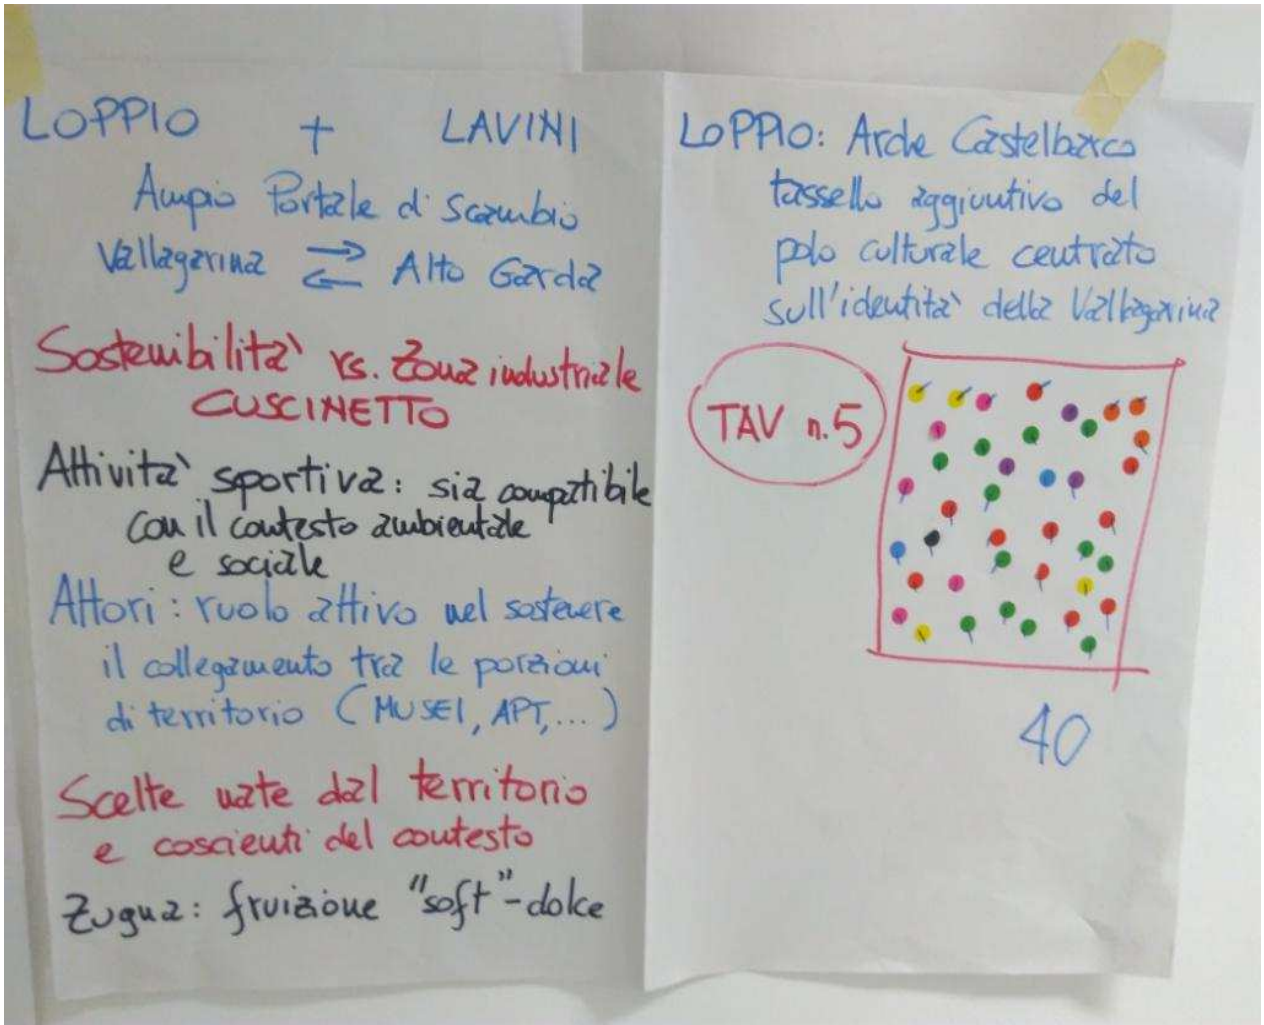 LOPPIO + LAVINI
Ampio Portale di Scambio
Vallagarina ⇄ Alto Garda
Sostenibilità vs. Zona industriale
CUSCINETTO
Attività sportiva: sia compatibile
con il contesto ambientale
e sociale
Attori: ruolo attivo nel sostenere
il collegamento tra le porzioni
di territorio (MUSEI, APT, ...)
Scelte nate dal territorio
e coscienti del contesto
Zugna: fruizione "soft"-dolce
LOPPIO: Arche Castelbarco
tassello aggiuntivo del
polo culturale centrato
sull'identità della Vallagarina
TAV n.5
40